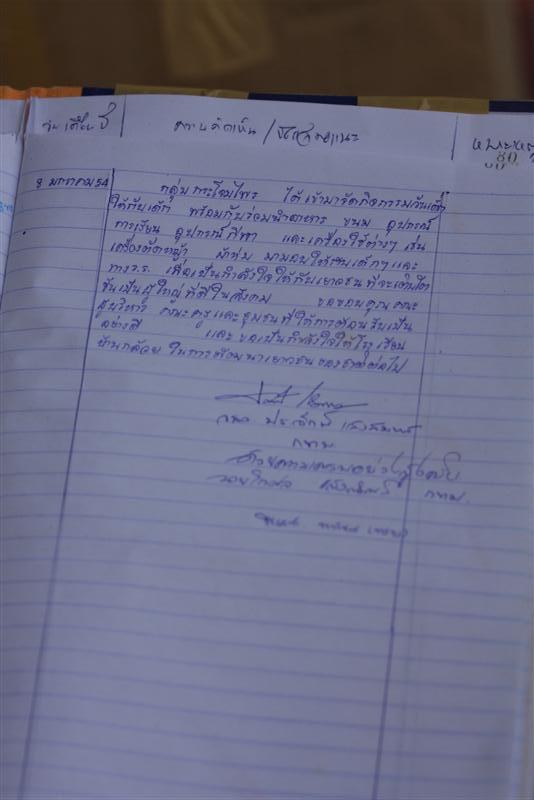 วัน เดือน ปี
ความคิดเห็น / ข้อเสนอแนะ
หมายเหตุ
80
8 มกราคม 54
กลุ่มกระโจมไพร ได้เข้ามาจัดกิจกรรมวันเด็ก
ให้กับเด็ก พร้อมกับร่วมทำอาหาร ขนม อุปกรณ์
การเรียน อุปกรณ์กีฬา และเครื่องใช้ต่างๆ เช่น
เครื่องตัดหญ้า ผ้าห่ม มามอบให้กับเด็กๆ และ
ทางร.ร. เพื่อเป็นกำลังใจให้กับเยาวชนที่จะเติบโต
ขึ้นเป็นผู้ใหญ่ที่ดีในสังคม ขอขอบคุณคณะ
ผู้บริหาร คณะครูและชุมชนที่ให้การต้อนรับเป็น
อย่างดี และขอเป็นกำลังใจให้โรงเรียน
บ้านกล้วย ในการพัฒนาเยาวชนของชาติต่อไป
กทม
ด้วยความเคารพอย่างสูงครับ
กทม.